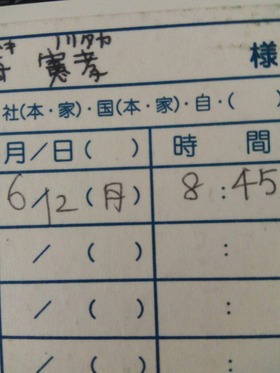 憲孝 様
社(本・家)・国(本・家)・自・(
月/日( ) 時 間
6/12(月) 8:45
/ ( ) :
/ ( ) :
/ ( ) :